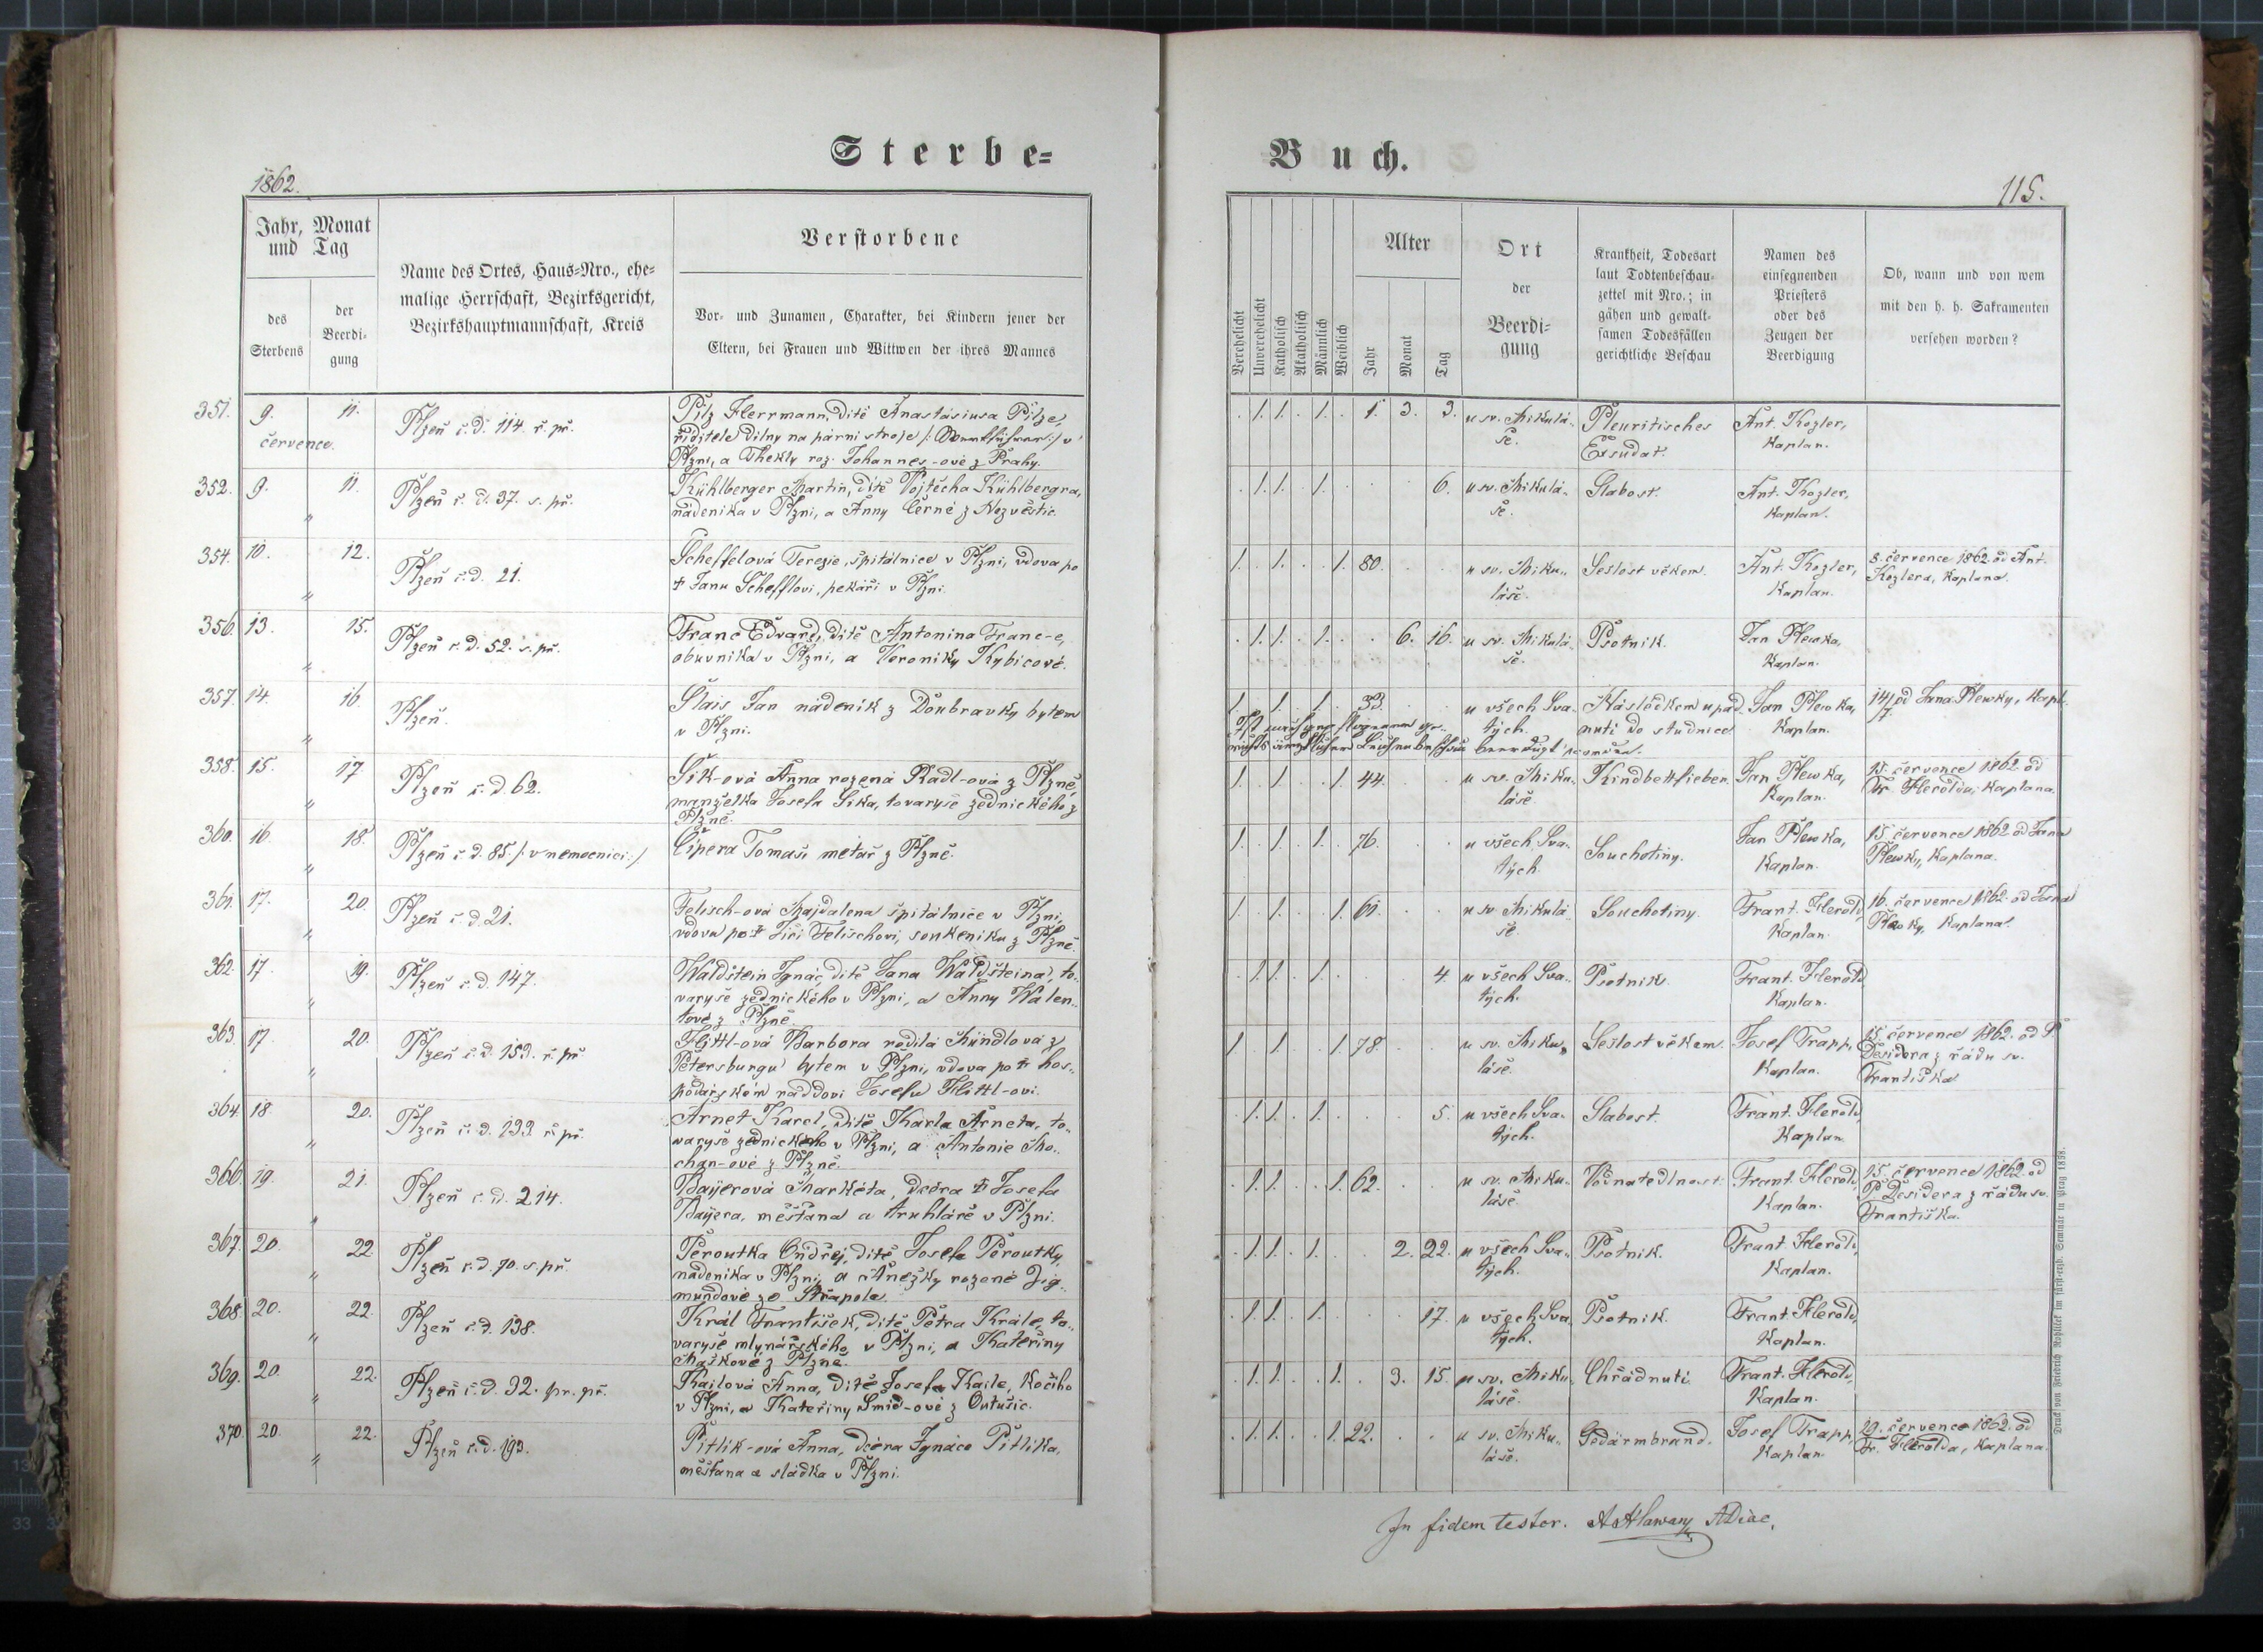 Sterbe-
1862.
Jahr, Monat
und Tag
des
Sterbens
der
Beerdi-
gung
Name des Ortes, Haus-Nro., ehe-
malige Herrschaft, Bezirksgericht,
Bezirkshauptmannschaft, Kreis
Verstorbene
Vor- und Zunamen, Charakter, bei Kindern jener der
Eltern, bei Frauen und Wittwen der ihres Mannes
351. 9. 11. Plzeň č. d. 114. ř. př. Pilz Herrmann, dítě Anastásiusa Pilze,
července. řiditele dílny na parní stroje v
Plzni, a Thekly roz. Johannes-ové z Prahy.
352. 9. 11. Plzeň č. d. 37. s. př. Kühlberger Martin, dítě Vojtěcha Kühlbergra,
" nádeníka v Plzni, a Anny Černé z Nezvěstic.
354. 10. 12. Plzeň č. d. 21. Scheffelová Terezie, špitálnice v Plzni, vdova po
" † Janu Schefflovi, pekáři v Plzni.
356. 13. 15. Plzeň č. d. 52. s. př. Franc Edvard, dítě Antonína Franc-e,
" obuvníka v Plzni, a Veroniky Kybicové.
357. 14. 16. Plzeň. Šlais Jan nádeník z Doubravky bytem
" v Plzni.
358. 15. 17 Plzeň č. d. 62. Šik-ová Anna rozená Radl-ová z Plzně,
" manželka Josefa Šika, tovaryše zednického z
Plzně.
360. 16. 18. Plzeň č. d. 85 /: v nemocnici :/ Čipera Tomáš metař z Plzně.
"
361. 17. 20. Plzeň č. d. 21. Felisch-ová Majdalena špitálnice v Plzni,
" vdova po † Jiří Felischovi, soukeníku z Plzně.
362. 17. 19. Plzeň č. d. 147. Waldštein Ignác, dítě Jana Waldšteina, to-
" varyše zednického v Plzni, a Anny Walen-
tové z Plzně
363. 17. 20. Plzeň č. d. 153. ř. př. Höttl-ová Barbora rodilá Mündlová z
" Petersburgu bytem v Plzni, vdova po † hos-
podářském raddovi Josefu Höttl-ovi.
364. 18 20. Plzeň č. d. 133 ř. př. Arnet Karel, dítě Karla Arneta, to-
" varyše zednického v Plzni, a Antonie Mo-
chan-ové z Plzně.
366. 19. 21. Plzeň č. d. 214. Bayerová Markéta, dcéra † Josefa
" Bayera, měšťana a truhláře v Plzni.
367. 20. 22. Plzeň č. d. 90. s. př. Peroutka Ondřej, dítě Josefa Peroutky,
" nádeníka v Plzni, a Anežky rozené Zig-
mundové ze
368. 20. 22. Plzeň č. d. 138. Král František, dítě Petra Krále, to-
" varyše mlynářského v Plzni, a Kateřiny
Maškové z Plzně.
369. 20. 22. Plzeň č. d. 32. pr. př. Kajlová Anna, dítě Josefa Kaile, kočího
" v Plzni, a Kateřiny Šmíd-ové z Outušic.
370. 20. 22. Plzeň č. d. 193. Pitlik-ová Anna, dcéra Ignáce Pitlika,
" měšťana a sládka v Plzni.
Buch.
115.
Verehelicht
Unverehelicht
Katholisch
Akatholisch
Männlich
Weiblich
Alter
Jahr
Monat
Tag
Ort
der
Beerdi-
gung
Krankheit, Todesart
laut Todtenbeschau-
zettel mit Nro.; in
gähen und gewalt-
samen Todesfällen
gerichtliche Beschau
Namen des
einsegnenden
Priesters
oder des
Zeugen der
Beerdigung
Ob, wann und von wem
mit den h. h. Sakramenten
versehen worden?
. 1. 1. . 1. . 1. 3. 3. u sv. Mikulá- Pleuritisches Ant. Kozler,
še. Exsudat. Kaplan.
. 1. 1. . 1. . . . 6. u sv. Mikulá- Slabost. Ant. Kozler,
še. Kaplan.
1. . 1. . . 1. 80. . . u sv. Miku- Sešlost věkem. Ant. Kozler, 8. července 1862. od Ant.
láše. Kaplan. Kozlera, Kaplana.
. 1. 1. . 1. . . 6. 16. u sv. Mikulá- Psotník. Jan Plewka,
še. Kaplan.
1. . 1. . 1. . 33. . . u všech Sva- Následkem upad- Jan Plewka, 14/7 od Jana Plewky, Kapl.
tých. nutí do studnice Kaplan.
beerdigt worden.
1. . 1. . . 1. 44. . . u sv. Miku- Kindbettfieber. Jan Plewka, 15. července 1862. od
láše. Kaplan. Fr. Herolda, Kaplana.
1. . 1. . 1. . 76. . . u všech Sva- Souchotiny. Jan Plewka, 15. července 1862 od Jana
tých. Kaplan. Plewky, Kaplana.
1. . 1. . . 1. 61. . . u sv. Mikulá- Souchotiny. Frant. Herold, 16. července 1862. od Jana
še. Kaplan. Plewky, Kaplana.
. 1. 1. . 1. . . . 4. u všech Sva- Psotník. Frant. Herold,
tých. Kaplan.
1. . 1. . . 1. 78. . . u sv. Miku- Sešlost věkem. Josef Trapp, 15. července 1862. od P.
láše. Kaplan. Desidera z řádu sv.
Františka
. 1. 1. . 1. . . . 5. u všech Sva- Slabost. Frant. Herold,
tých. Kaplan.
. 1. 1. . . 1. 62. . . u sv. Miku- Vodnatedlnost. Frant. Herold, 15. července 1862. od
láše. Kaplan. P. Desidera z řádu sv.
Františka.
. 1. 1. . 1. . . 2. 22. u všech Sva- Psotník. Frant. Herold,
tých. Kaplan.
. 1. 1. . 1. . . . 17. u všech Sva- Psotník. Frant. Herold,
tých. Kaplan.
. 1. 1. . . 1. . 3. 15. u sv. Miku- Chřadnutí. Frant. Herold,
láše. Kaplan.
. 1. 1. . . 1. 22. . . u sv. Miku- Gedärmbrand. Josef Trapp, 19. července 1862. od
láše. Kaplan. Fr. Herolda, Kaplana.
In fidem testor.
Druck von Friedrich Rohlicek im fürst-erzb. Seminär in Prag 1858.